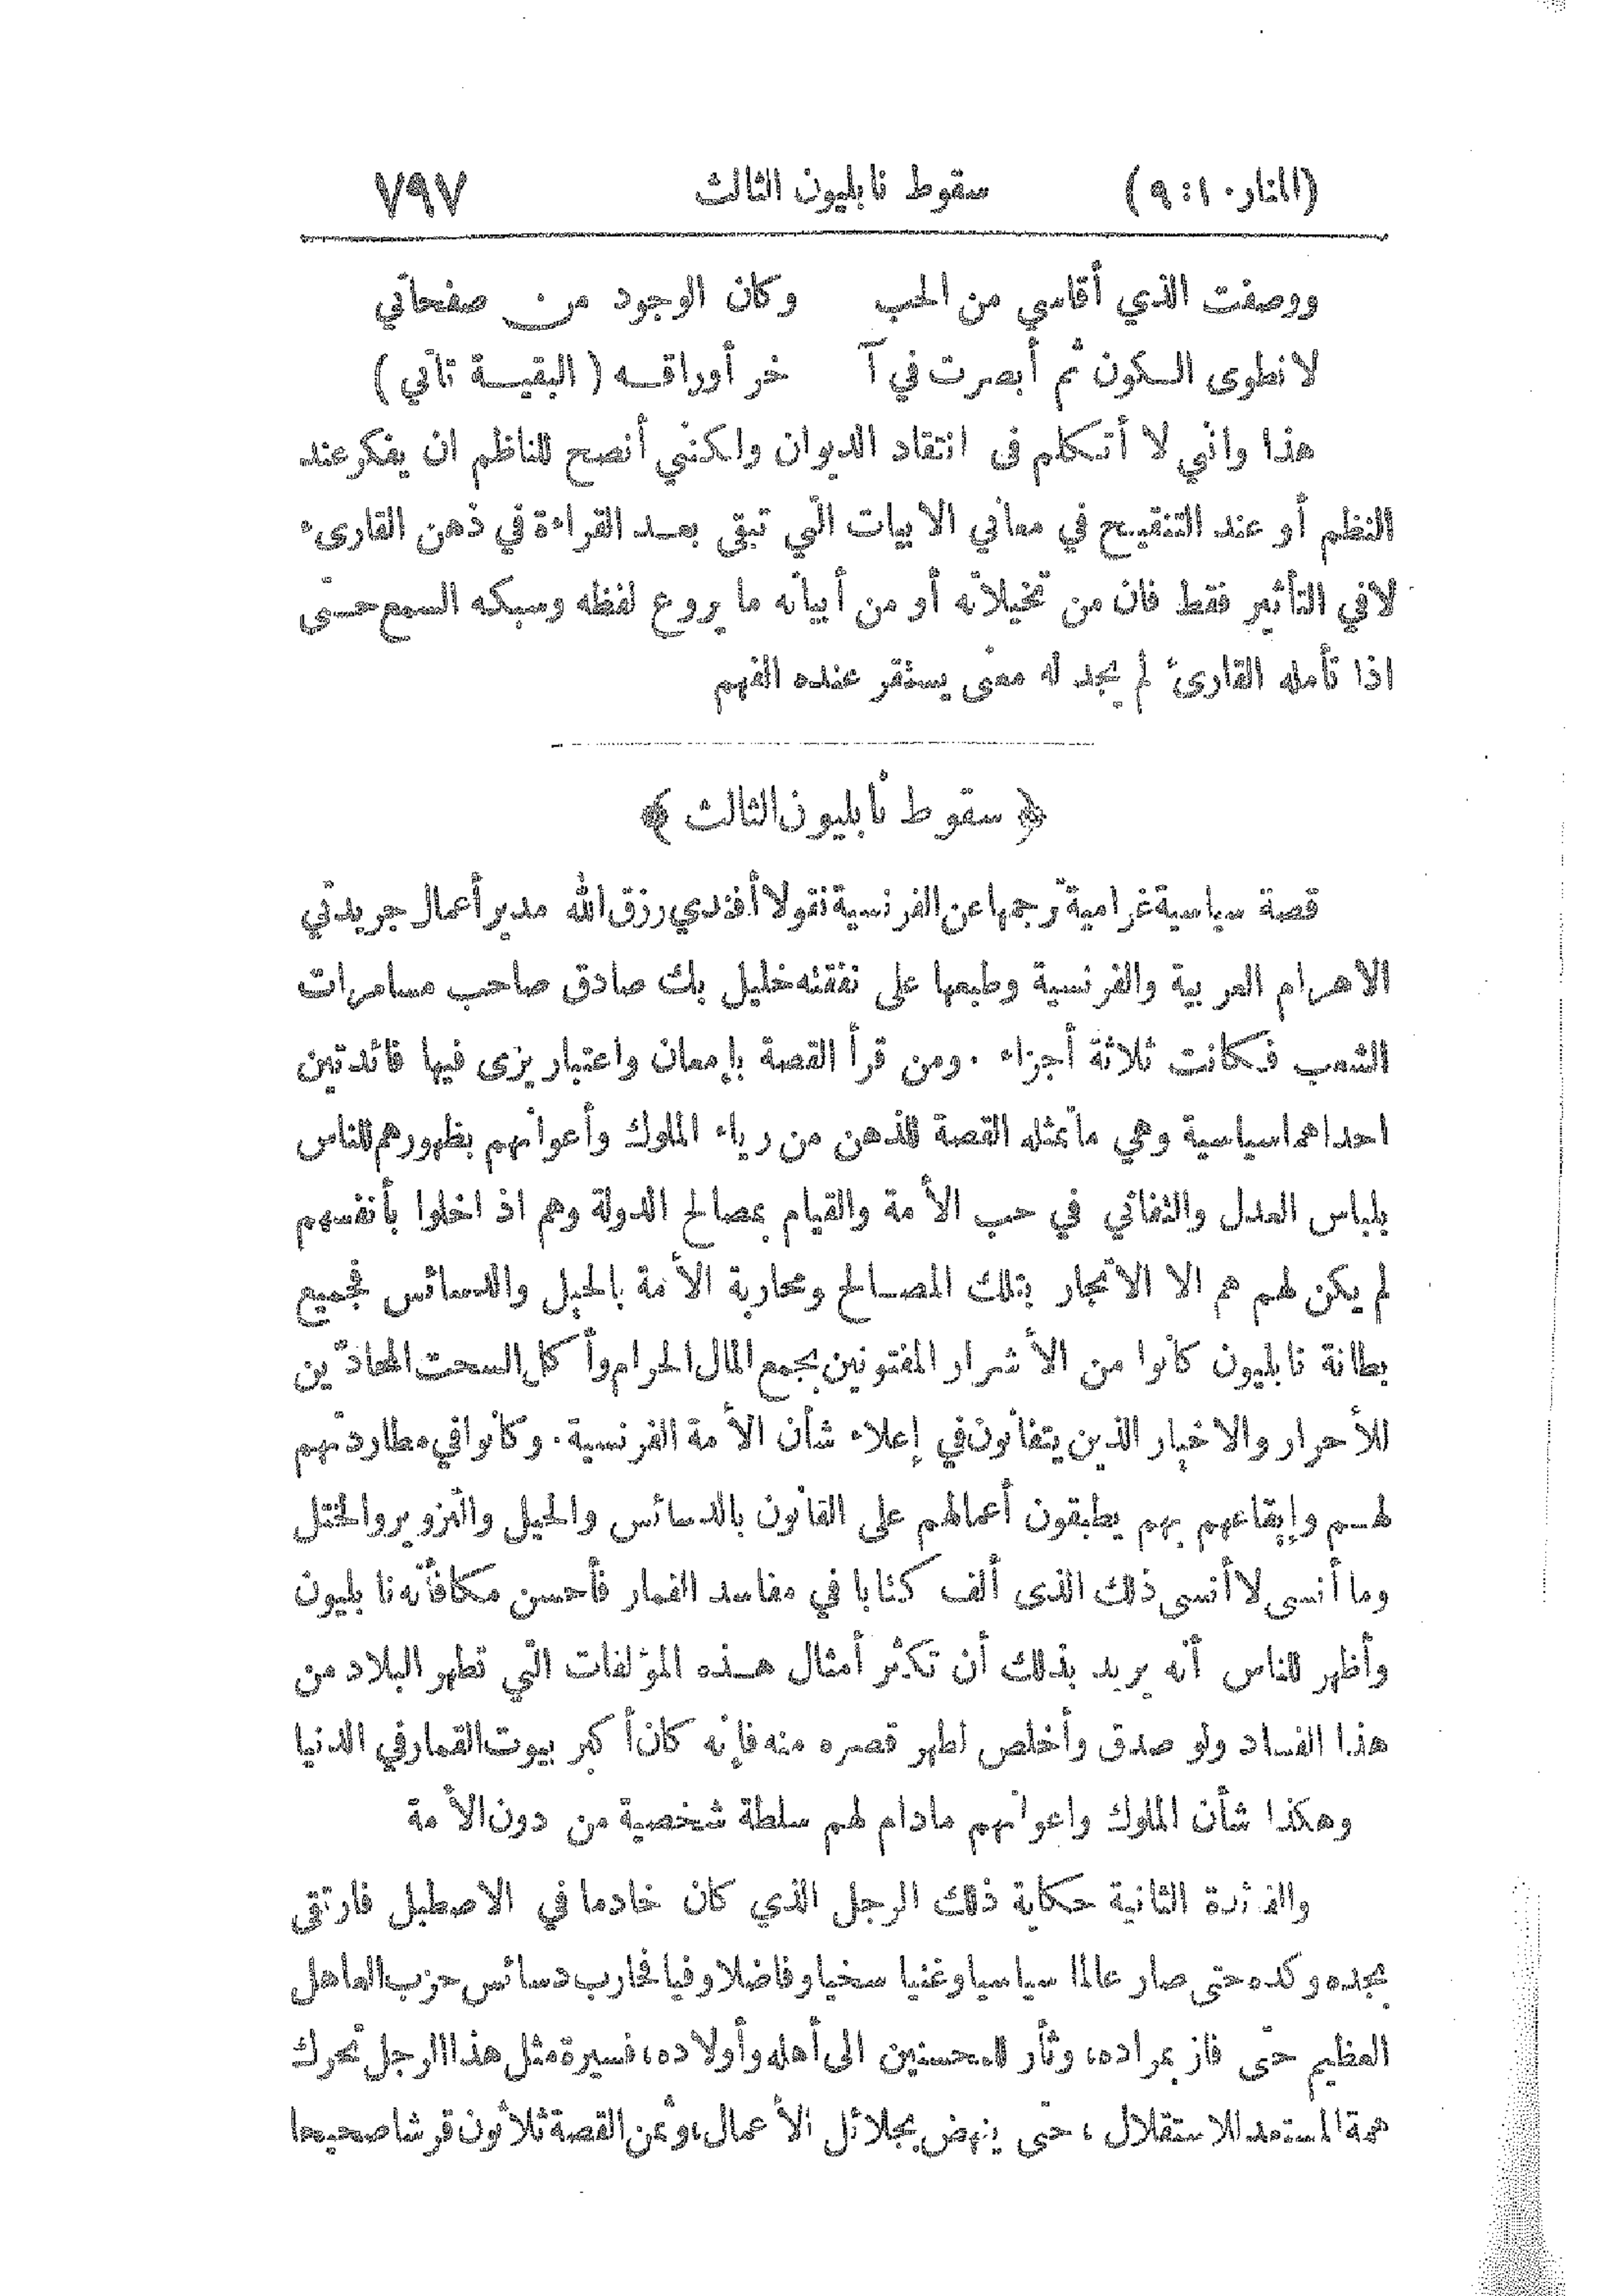 (المنار ١٠ : ٩) سقوط نابليون الثالث ٧٩٧
ووصفت الذي أقاسي من الحب وكان الوجود من صفحاتي
لانطوى الكون ثم أبصرت في آ خر أوراقه (البقية تأتي)
هذا واني لا أتكلم فى انتقاد الديوان ولكنني أنصح للناظم ان يفكر عند
النظم أو عند التنقيح في معاني الابيات التي تبقى بعد القراءة في ذهن القارىء
لا في التأثير فقط فان من تخيلاته أو من أبياته ما يروع لفظه وسبكه السمع حتى
اذا تأمله القارئ لم يجد له معنى يستقر عنده الفهم
﴿ سقوط نابليون الثالث ﴾
قصة سياسية غرامية ترجمها عن الفرنسية نقولا أفندي رزق الله مدير أعمال جريدتي
الاهرام العربية والفرنسية وطبعها على نفقته خليل بك صادق صاحب مسامرات
الشعب فكانت ثلاثة أجزاء . ومن قرأ القصة بإمعان واعتبار يرى فيها فائدتين
احداهما سياسية وهي ما تمثله القصة للذهن من رياء الملوك وأعوانهم بظهورهم للناس
بلباس العدل والتفاني في حب الأمة والقيام بمصالح الدولة وهم اذ اخلوا بأنفسهم
لم يكن لهم هم الا الاتجار بتلك المصالح ومحاربة الأمة بالحيل والدسائس فجميع
بطانة نابليون كانوا من الأشرار المفتونين بجمع المال الحرام وأكل السحت المحادّين
للأحرار والاخيار الذين يتفانون في إعلاء شأن الأمة الفرنسية . وكانوا في مطاردتهم
لهم وإيقاعهم بهم يطبقون أعمالهم على القانون بالدسائس والحيل والتزوير والختل
وما أنسى لا أنسى ذلك الذى ألف كتابا في مفاسد القمار فأحسن مكافأته نابليون
وأظهر للناس أنه يريد بذلك أن تكثر أمثال هذه المؤلفات التي تطهر البلاد من
هذا الفساد ولو صدق وأخلص لطهر قصره منه فإنه كان أكبر بيوت القمار في الدنيا
وهكذا شأن الملوك واعوانهم مادام لهم سلطة شخصية من دون الأمة
والفائدة الثانية حكاية ذلك الرجل الذي كان خادما في الاصطبل فارتقى
بجده وكده حتى صار عالما سياسيا وغنيا سخيا وفاضلا وفيا فحارب دسائس حزب العاهل
العظيم حتى فاز بمراده، وثأر للمحسنين الى أهله وأولاده، فسيرة مثل هذا الرجل تحرك
همة المستعد للاستقلال ، حتى ينهض بجلائل الأعمال، وثمن القصة ثلاثون قرشا صحيحا